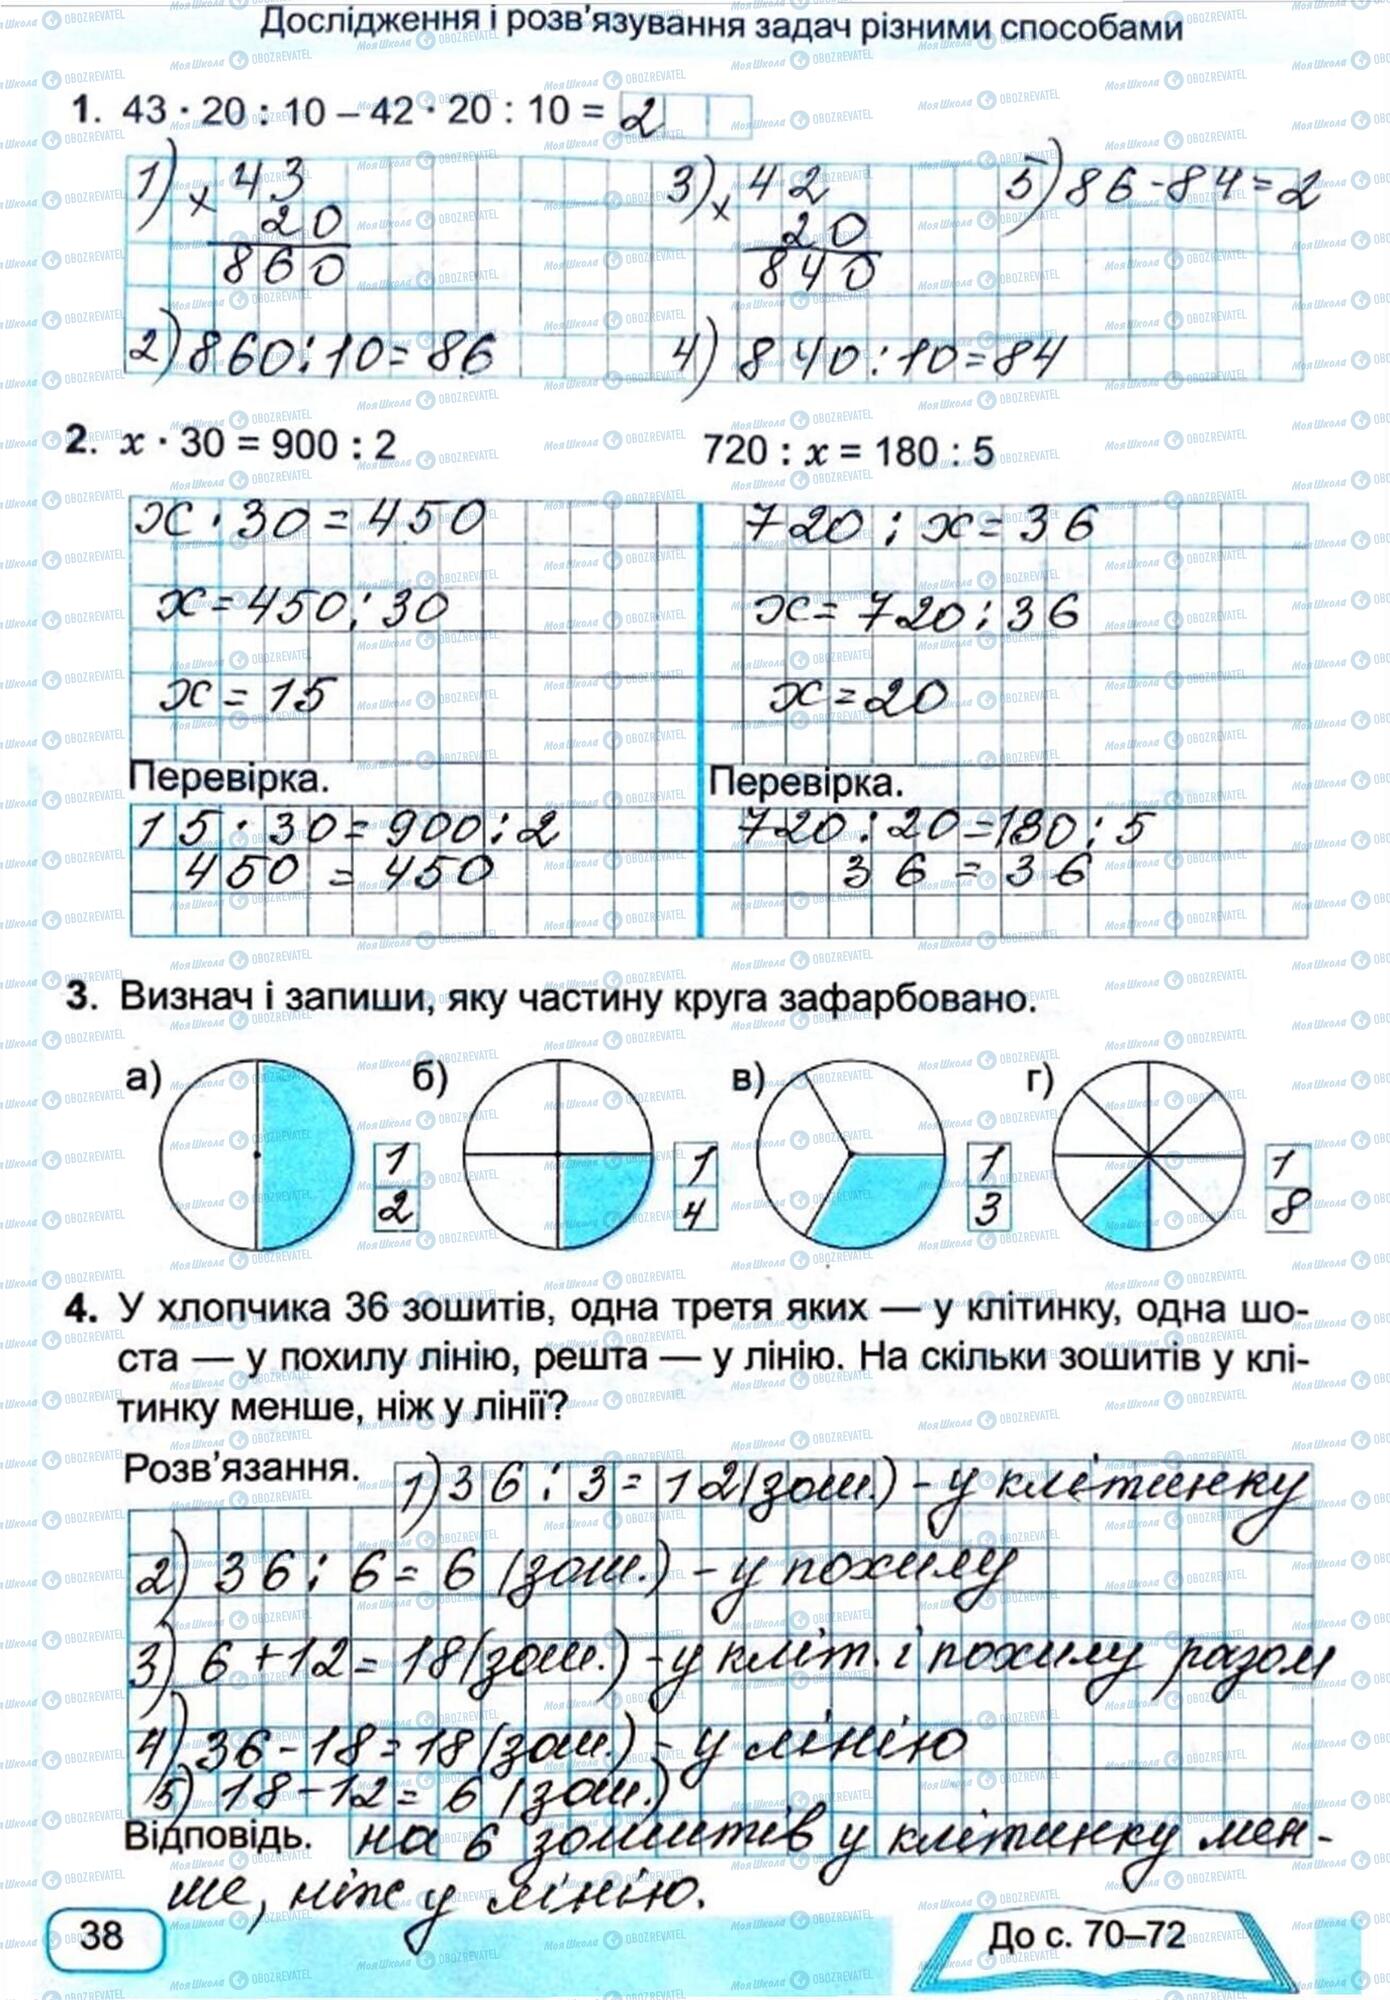 Дослідження і розв'язування задач різними способами
1. 43 · 20 : 10 – 42 · 20 : 10 = 2
1) × 43
20
860
2) 860 : 10 = 86
3) × 42
20
840
4) 840 : 10 = 84
5) 86 - 84 = 2
2. x · 30 = 900 : 2
x · 30 = 450
x = 450 : 30
x = 15
Перевірка.
15 · 30 = 900 : 2
450 = 450
720 : x = 180 : 5
720 : x = 36
x = 720 : 36
x = 20
Перевірка.
720 : 20 = 180 : 5
36 = 36
3. Визнач і запиши, яку частину круга зафарбовано.
а) 1/2 б) 1/4 в) 1/3 г) 1/8
4. У хлопчика 36 зошитів, одна третя яких — у клітинку, одна шо-
ста — у похилу лінію, решта — у лінію. На скільки зошитів у клі-
тинку менше, ніж у лінії?
Розв'язання. 1) 36 : 3 = 12 (зош.) - у клітинку
2) 36 : 6 = 6 (зош.) - у похилу
3) 6 + 12 = 18 (зош.) - у кліт. і похилу разом
4) 36 - 18 = 18 (зош.) - у лінію
5) 18 - 12 = 6 (зош.)
Відповідь. на 6 зошитів у клітинку мен-
ше, ніж у лінію.
38
До с. 70–72
МояШкола OBOZREVATEL